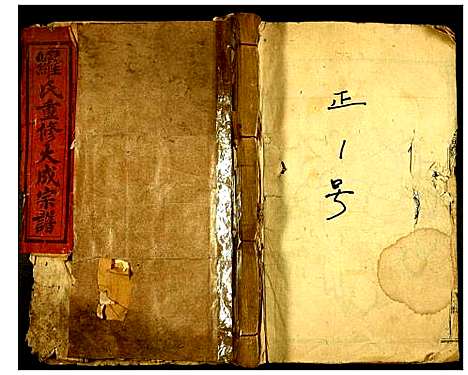 羅氏重修大成宗譜
正1号